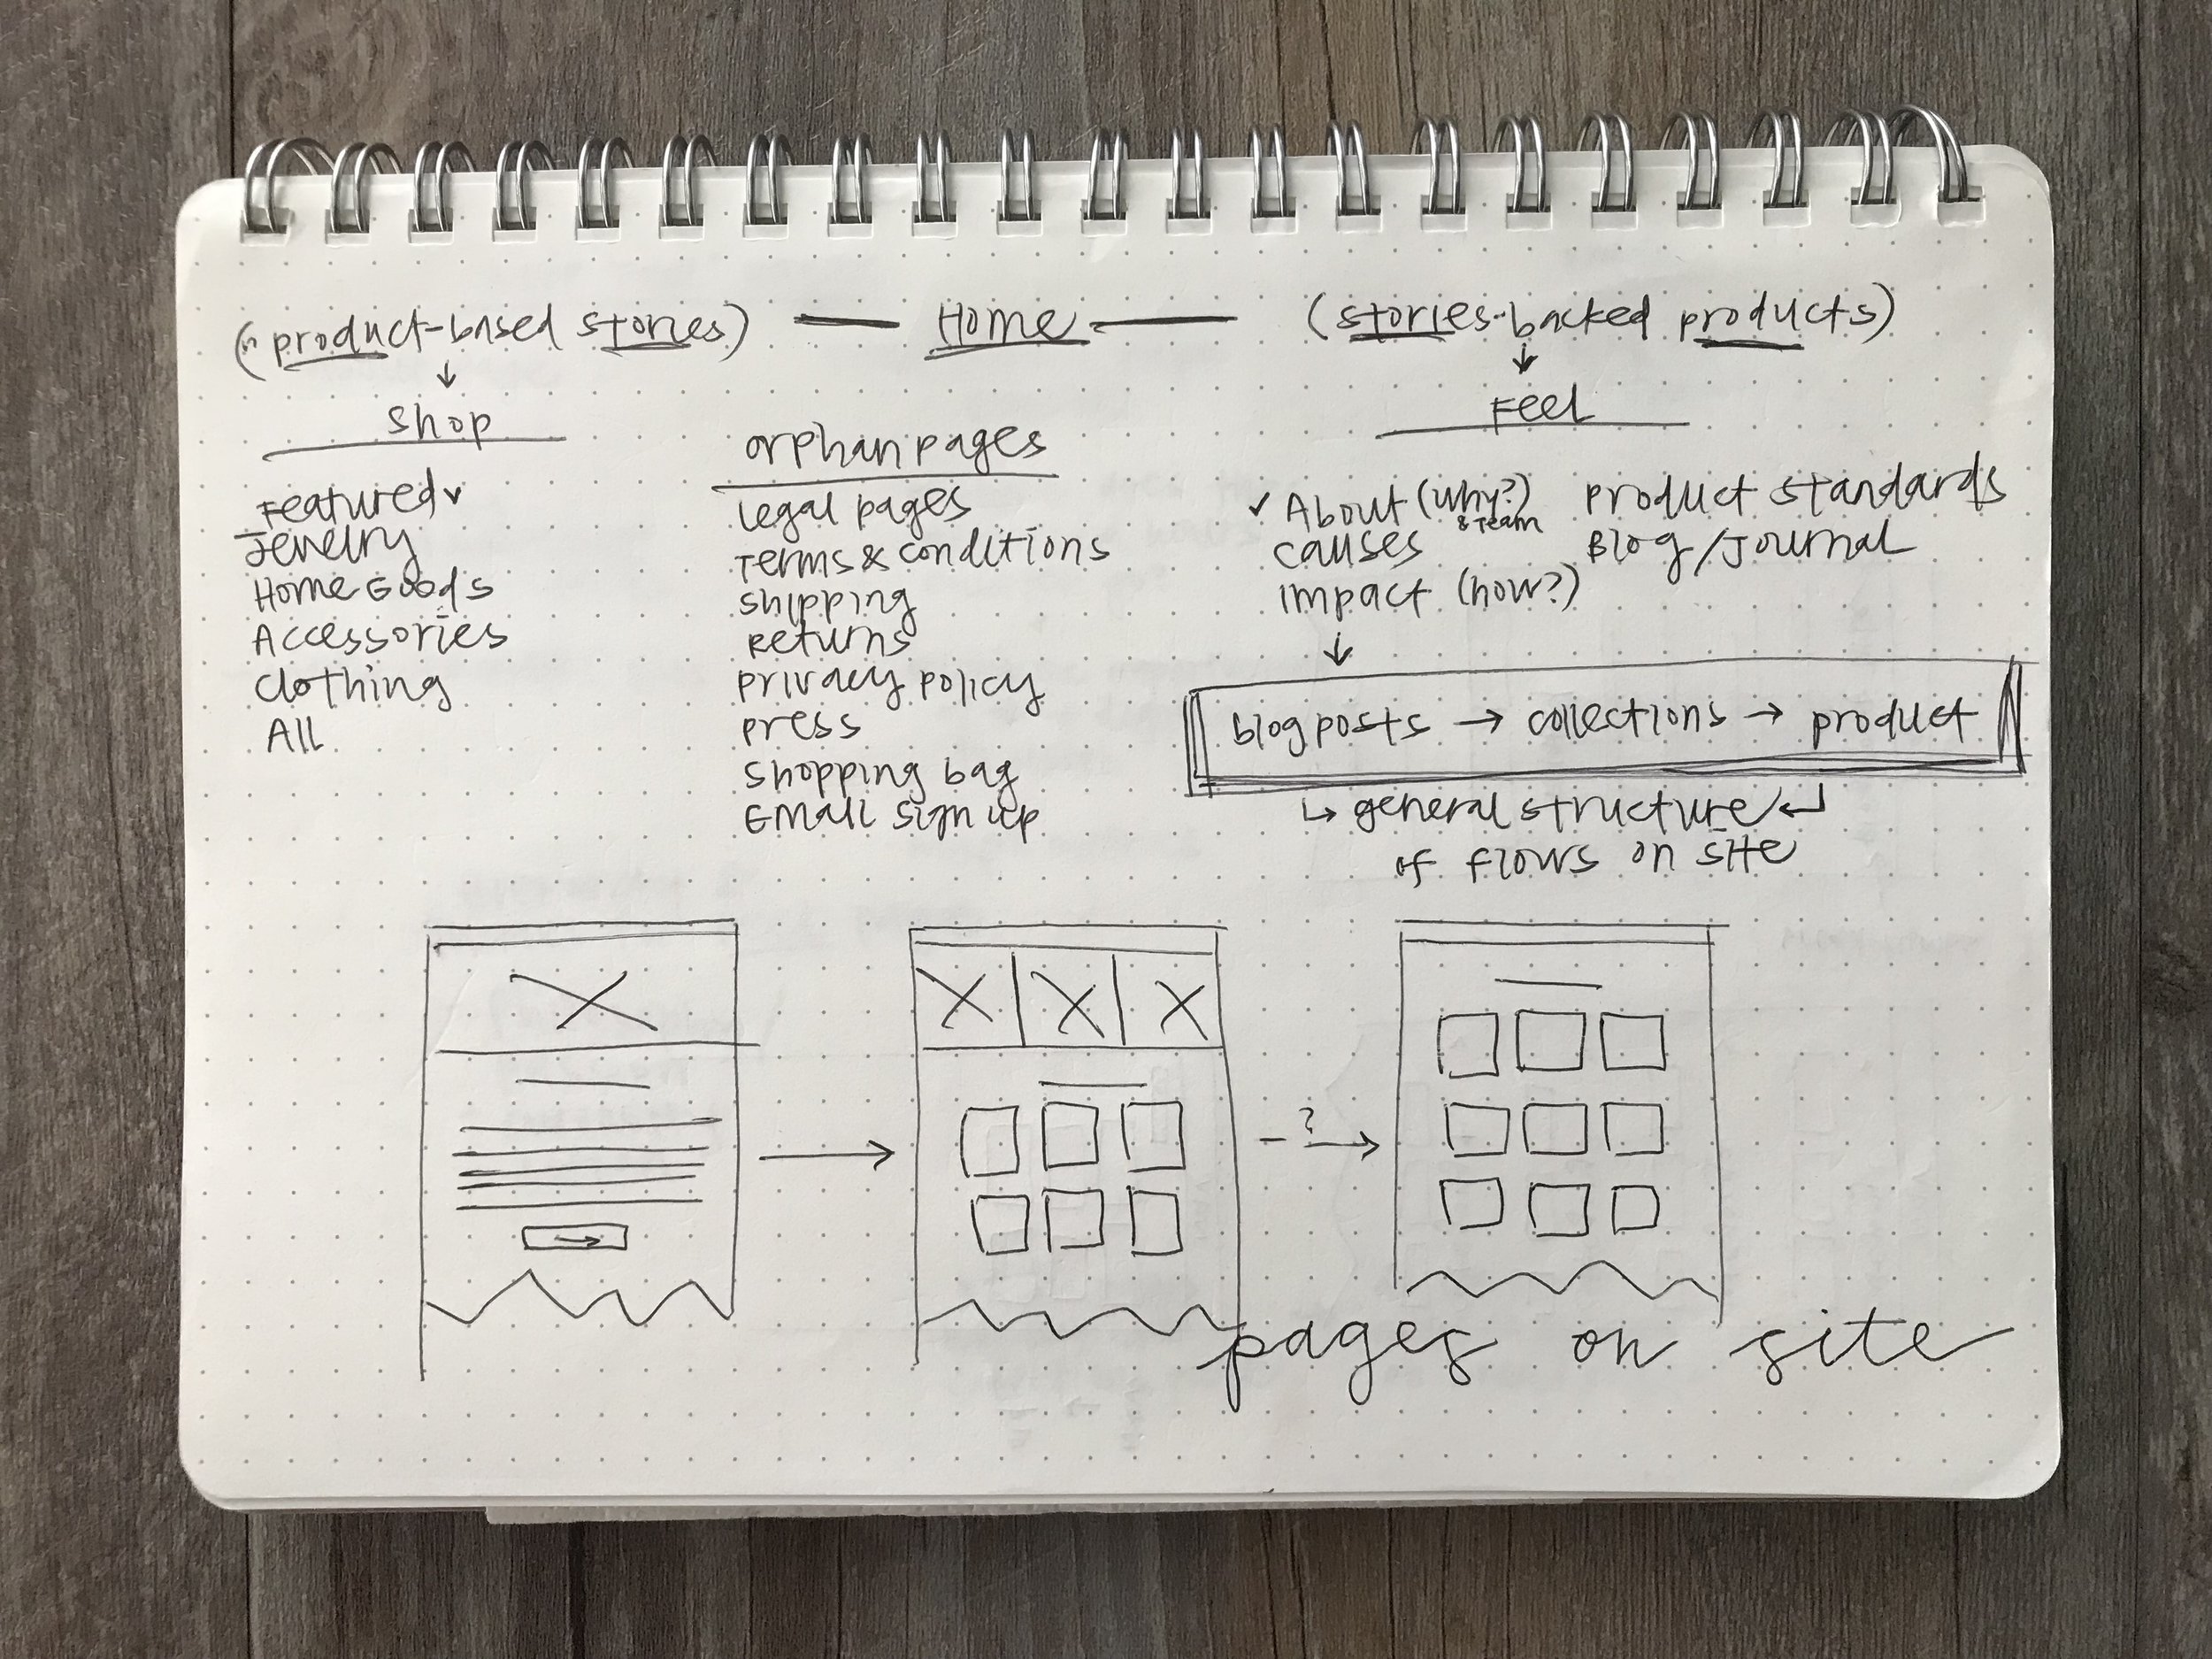 (product-based stories) — Home — (stories-backed products)
↓
Shop
Featured ✓
Jewelry
Home Goods
Accessories
Clothing
All
orphan pages
Legal pages
Terms & conditions
Shipping
Returns
privacy policy
press
Shopping bag
Email sign up
↓
Feel
✓ About (why?)
& Team
causes
impact (how?)
product standards
Blog/Journal
↓
blog posts → collections → product
↳ general structure ↲
of flows on site
?
pages on site